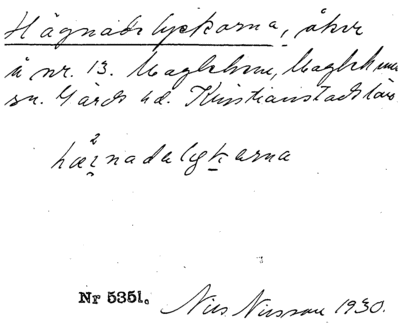 Hägnadslyckorna, åkr
å nr. 13. Maglehem, Maglehems
sn. Gärds hd. Kristianstads län.
hæznadalykarna
Nr 5351. Nils Nilsson 1930.